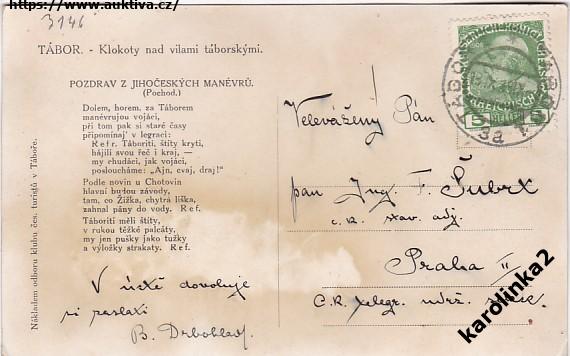 https://www.auktiva.cz/
3146
TÁBOR. - Klokoty nad vilami táborskými.
POZDRAV Z JIHOČESKÝCH MANÉVRŮ.
(Pochod.)
Dolem, horem, za Táborem
manévrujou vojáci,
při tom pak si staré časy
připomínaj' v legraci:
Refr. Táboriti, štíty kryti,
hájili svou řeč i kraj, —
my chudáci, jak vojáci,
posloucháme: „Ajn, cvaj, draj!"
Podle novin u Chotovin
hlavní budou závody,
tam, co Žižka, chytrá liška,
zahnal pány do vody. Ref.
Táboriti měli štíty,
v rukou těžké palcáty,
my jen pušky jako tužky
a výložky strakaty. Ref.
Nákladem odboru klubu čes. turistů v Táboře.
V úctě dovoluje
si zaslati
B. Drbohlav.
Velevážený Pán
pan Ing. F. Šubrt
c. k. stav. adj.
Praha II
C. K. telegr.
TÁBOR
5 HELLER 5
karolinka2